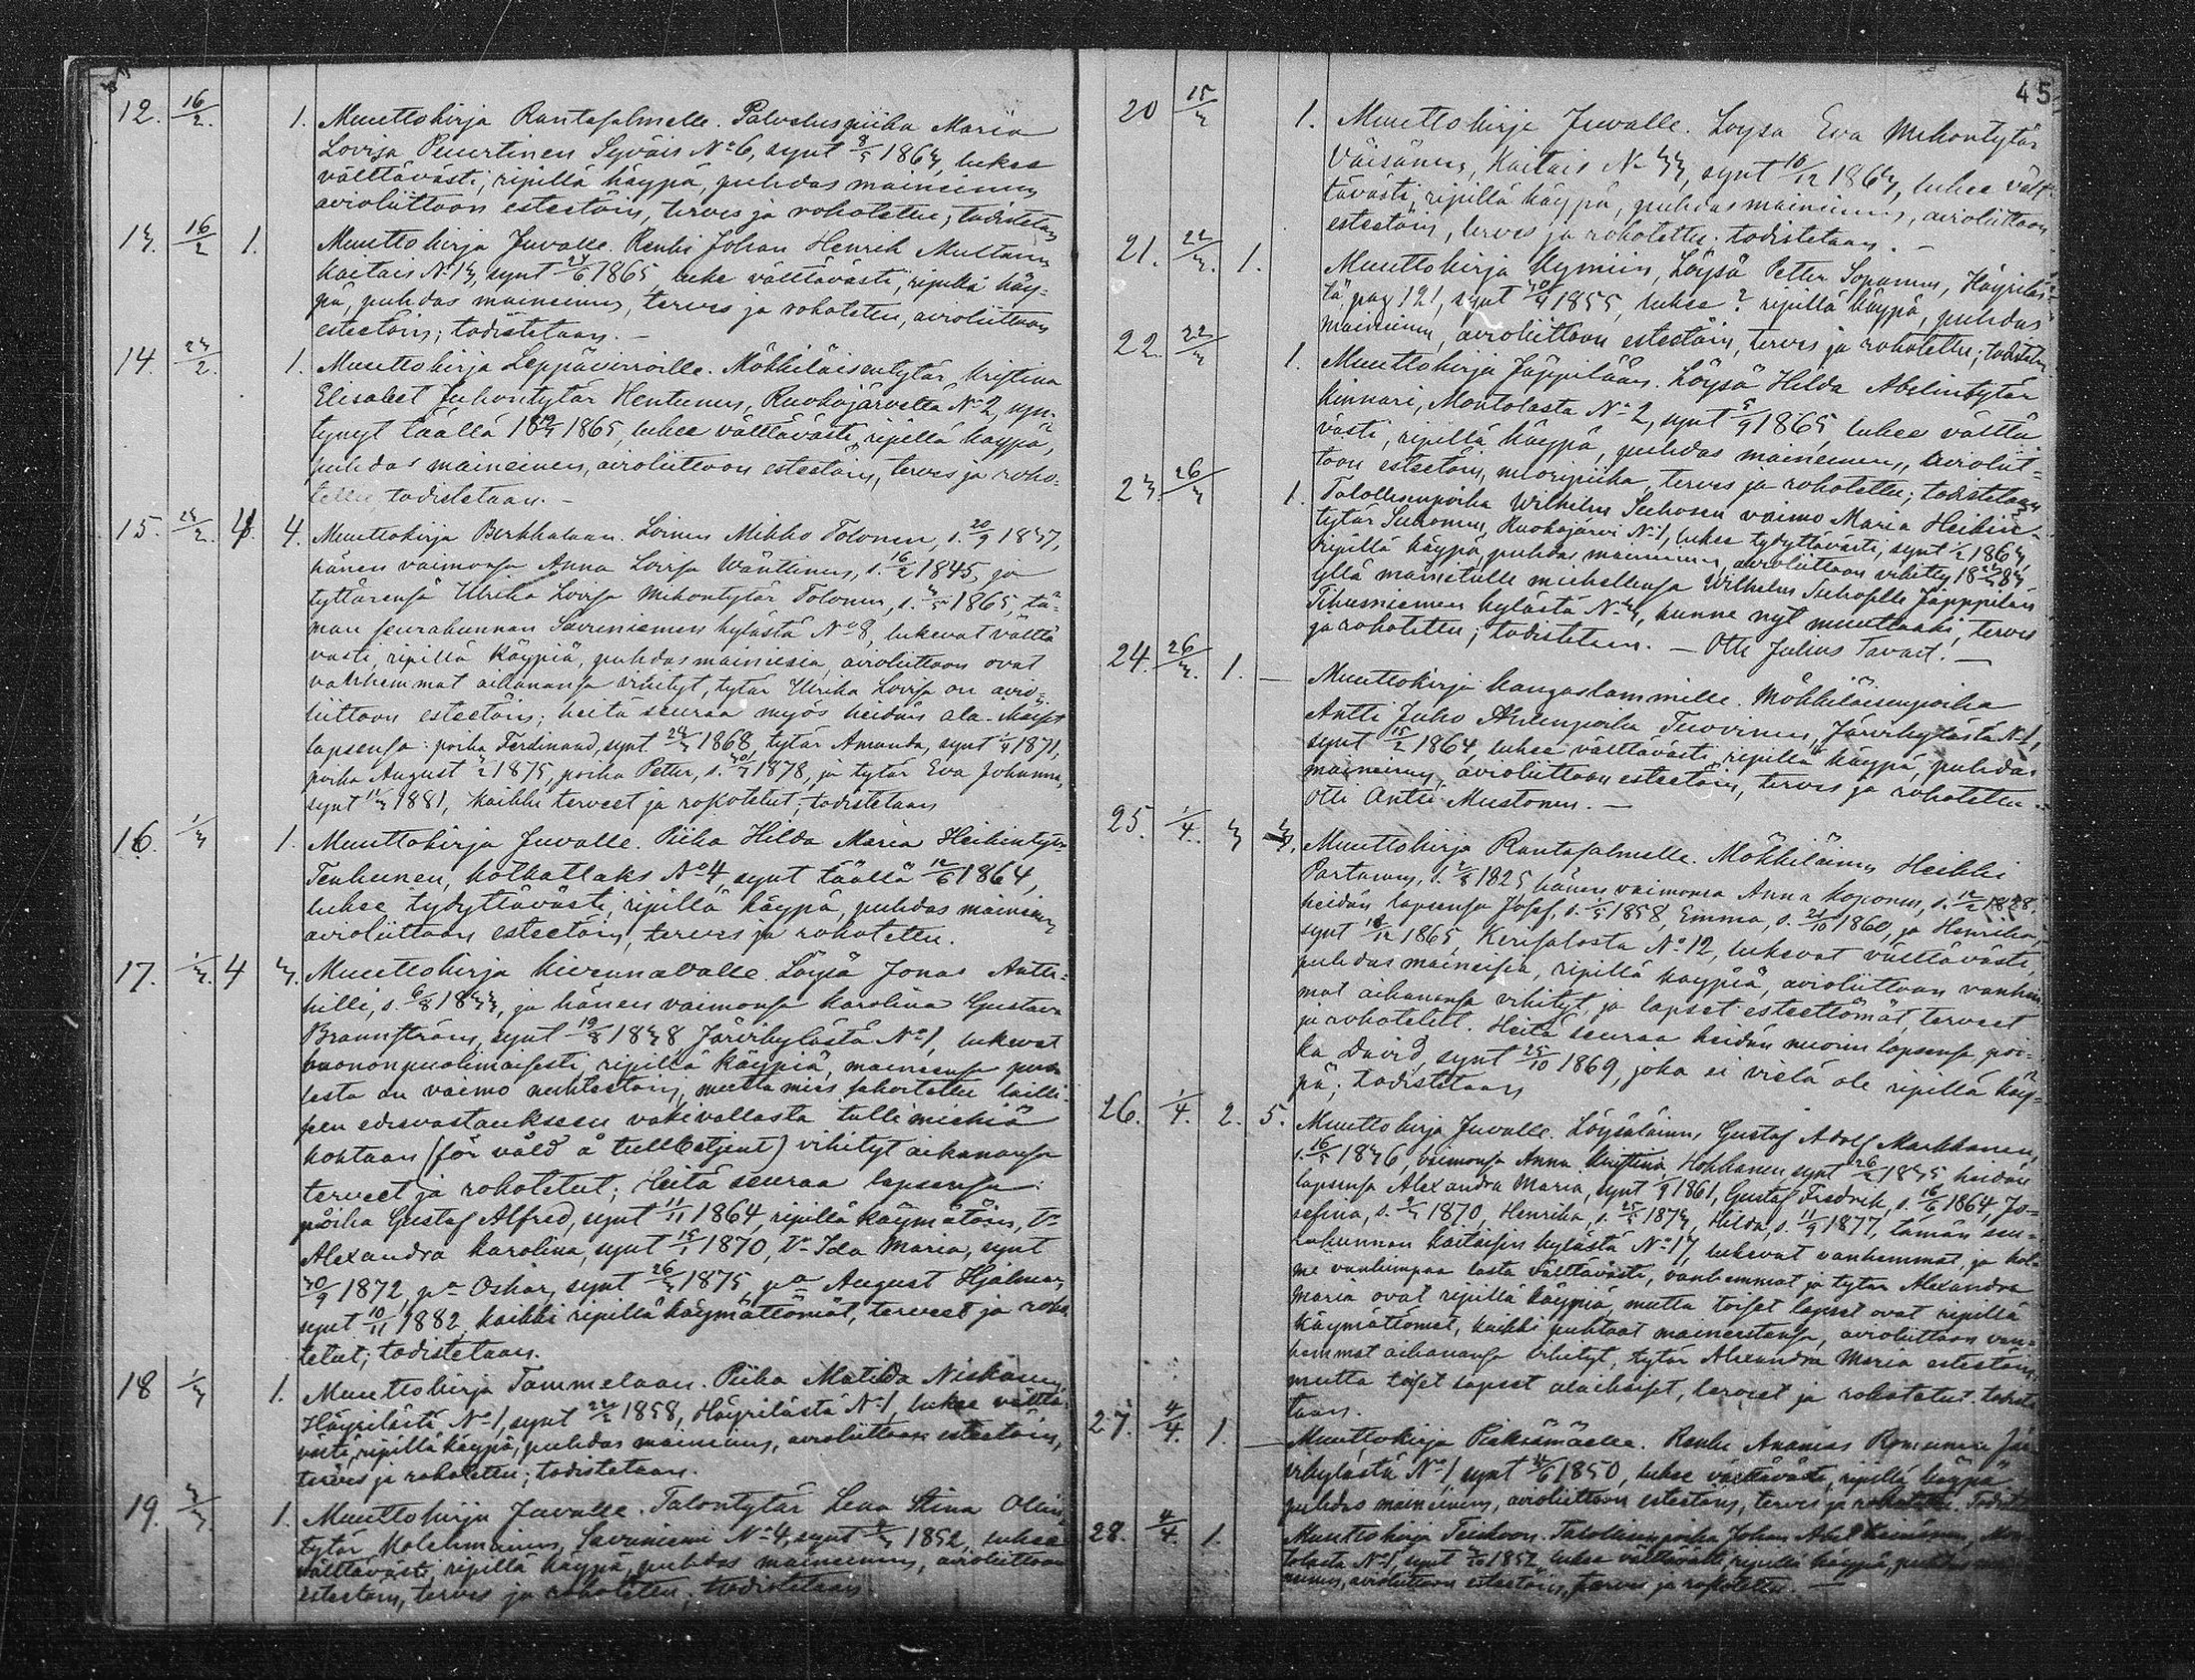 12. 16/2. 1. Muuttokirja Rantasalmelle. Palveluspiika Maria
Lovisa Puurtinen Syväis No 6, synt 8/5 1863, lukee
välttävästi, ripillä käypä, puhdas maineinen,
avioliittoon esteetöin, terves ja rokotettu; todistetaan
13. 16/2 1. Muuttokirja Juvalle. Renki Johan Henrik Multanen
Kaitais No 13, synt 24/6 1865, lukee välttävästi, ripillä käy-
pä, puhdas maineinen, terves ja rokotettu, avioliittoon
esteetöin; todistetaan. -
14. 23/2. 1. Muuttokirja Leppävirroille. Mökkiläisentytär Kristina
Elisabet Juhontytär Hentunen, Ruokojärveltä No 2, syn-
tynyt täällä 1865, lukee välttävästi, ripillä käypä,
puhdas maineinen, avioliittoon esteetöin, terves ja roko-
tettu todistetaan. -
15. 23/2. 4. 4. Muuttokirja Mikko Tolonen, s. 20/9 1837,
hänen vaimonsa Anna Lovisa Wänttinen, s. 16/2 1845, ja
tyttärensä Ulrika Lovisa Mikontytär Tolonen, s. 3/5 1865, tä-
män seurakunnan Savuniemen kylästä No 8, lukevat välttä
västi, ripillä käypiä, puhdasmaineisia, avioliittoon ovat
vanhemmat aikananga vihityt, tytär Ulrika Lovisa on avio-
liittoon esteetöin; heitä seuraa myös heidän ala-ikäiset
lapsensa: poika Ferdinand, synt 24/3 1868, tytär Amanda, synt 1/4 1871,
poika August 3/2 1875, poika Petter, s. 30/3 1878, ja tytär Eva Johanna,
synt 11/3 1881, kaikki terveet ja rokotetut, todistetaan
16. 1/3 1. Muuttokirja Juvalle. Piika Hilda Maria Heikintytär
Tenhunen, Kölkatlaks No 4, synt täällä 12/6 1864,
lukee tydyttävästi, ripillä käypä, puhdas maineinen
avioliittoon esteetöin, terves ja rokotettu.
17. 1/3. 4 3. Muuttokirja Kivennavalle. Löysä Jonas Antti-
killi, s. 6/8 1833, ja hänen vaimonsa Karolina Gustava
Brannström, synt 19/8 1838 Järvikylästä No 1, lukevat
huononpuolimaisesti, ripillä käypiä, maineensa puo
lesta on vaimo nuhteetoin, mutta mies sakotettu lailli-
sen edesvastaukseen väkivallasta tullimiehiä
kohtaan (för våld å tullbetjent) vihityt aikananga
terveet ja rokotetut; Heitä seuraa lapsensa:
poika Gustaf Alfred, synt 11/11 1864, ripillä käymätöin, Tr
Alexandra Karolina, synt 15/1 1870, Tr Ida Maria, synt
30/9 1872, pa Oskar, synt 26/3 1875, pa August Hjalmar,
synt 10/11 1882, kaikki ripillä käymättömät, terveet ja roko
tetut; todistetaan.
18 1/3 1. Muuttokirja Tammelaan. Piika Matilda Niskanen
Häyrilästä No 1, synt 22/2 1858, Häyrilästä No 1, lukee välttä-
västi, ripillä käypä, puhdas maineinen, avioliittoon esteetöin,
terves ja rokotettu; todistetaan.
19. 3/3. 1. Muuttokirja Juvalle. Talontytär Lena Stina Olin-
tytär Kolehmainen, Savuniemi No 4, synt 1852, lukee
välttävästi, ripillä käypä, puhdas maineinen, avioliittoon
esteetöin, terves ja rokotettu; todistetaan
45
20 15/3 1. Muuttokirja Juvalle. Loysa Eva Mikontytär
Väisänen, Kaitais No 33, synt 10/12 1863, lukee vält-
tävästi, ripillä käypä, puhdas maineinen, avioliittoon
esteetöin, terves ja rokotettu; todistetaan. -
21. 22/3. 1. Muuttokirja Kymiin, Löysä Petter Sopanen, Häyriläs
tä, pag 121, synt 30/4 1855, lukee ? ripillä käypä, puhdas
maineinen, avioliittoon esteetöin, terves ja rokotettu; todistetaan.
22. 22/3 1. Muuttokirja Jäppilään. Löysä Hilda Abelintytär
Kinnari, Montolasta No 2, synt 5/9 1865, lukee välttä
västi, ripillä käypä, puhdas maineinen, avioliit-
toon esteetöin, nuoripiika, terves ja rokotettu; todistetaan
23. 26/3 1. Talollisenpoika Wilhelm Seehosen vaimo Maria Heikin-
tytär Suhonen, Ruokojärvi No 1, lukee tydyttävästi, synt 1/2 1863,
ripillä käypä, puhdas maineinen, avioliittoon vihitty
yllä mainitulle miehellensa Wilhelm Seehoselle Jäppilän
Tihusniemen kylästä No 3, kunne nyt muuttaaki, terves
ja rokotettu; todistetaan. - Otti Julius Tavast. -
24. 26/3. 1. - Muuttokirja Kangaslammille. Mökkiläisenpoika
Antti Juho Tuovinen, Järvikylästä No 1,
synt 15/2 1864, lukee välttävästi, ripillä käypä, puhdas
maineinen, avioliittoon esteetöin, terves ja rokotettu -
Otti Antti Mustonen. -
25. 1/4. 3 3. Muuttokirja Rantasalmelle. Mökkiläinen Heikki
Partanen, s. 2/8 1825, hänen vaimonsa Anna Koponen, s. 12/2 1828,
heidän lapsensa Josef, s. 1/5 1858, Emma, s. 21/10 1860, ja Henrika,
synt 18/12 1865, Kerisalosta No 12, lukevat välttävästi,
puhdas maineisia, ripillä käypiä, avioliittoon vanhem
mat aikananga vihityt, ja lapset esteettömät, terveet
ja rokotetut. Heitä seuraa heidän nuorin lapsensa, poi-
ka David, synt 25/10 1869, joka ei vielä ole ripillä käy-
pä; todistetaan
26. 1/4. 2. 5. Muuttokirja Juvalle. Löysäläinen Gustaf Adolf Markkanen,
s. 16/5 1836, vaimonsa Anna Kristina Hokkanen synt 26/2 1835 heidän
lapsensa Alexandra Maria, synt 1/9 1861, Gustaf Fredrik, s. 16/6 1864, Jo-
sefina, s. 9/3 1870, Henrika, s. 25/5 1873, Hilda, s. 11/9 1877, tämän seu-
rakunnan Kaitaisen kylästä No 17, lukevat vanhemmat, ja kol-
me vanhimpaa lasta välttävästi, vanhemmat ja tytär Alexandra
Maria ovat ripillä käypiä, mutta toiset lapset ovat ripillä
käymättömät, kaikki puhtaat maineestansa, avioliittoon van-
hemmat aikananga vihityt, tytär Alexandra Maria esteetöin,
mutta toiset lapset alaikäiset, terveet ja rokotetut. todiste
taan.
27. 4/4. 1. - Muuttokirja Pieksämäelle. Renki Ananias Romunen Jär
vikylästä No 1, synt 1850, lukee välttävästi, ripillä käypä
puhdas maineinen, avioliittoon esteetöin, terves ja rokotettu.
28. 4/4 1. Muuttokirja Teiskoon. Talollisenpoika Johan Abel
No 1, synt 1852, lukee välttävästi, ripillä käypä,
avioliittoon esteetöin, terves ja rokotettu. -